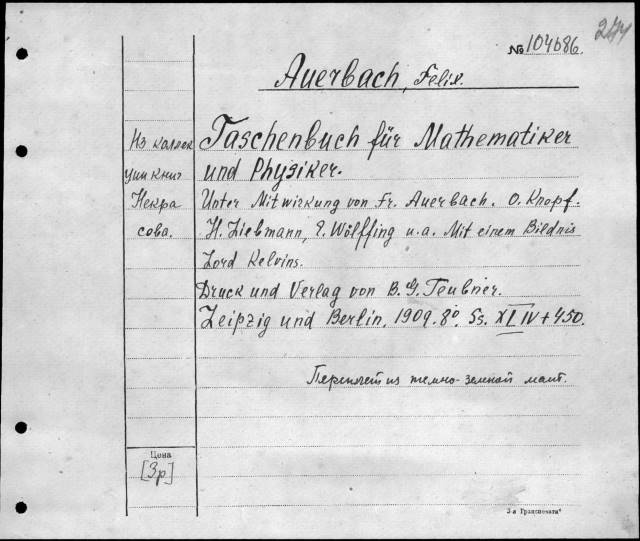 244
№ 104686.
Auerbach, Felix.
Из коллек
ции книг
Некра
сова.
Taschenbuch für Mathematiker
und Physiker.
Unter Mitwirkung von Fr. Auerbach. O. Knopf.
H. Liebmann, E. Wölffing u.a. Mit einem Bildnis
Lord Kelvins.
Druck und Verlag von B. G. Teubner.
Leipzig und Berlin, 1909. 8°. Ss. XLIV + 450.
Переплет из темно-зеленой мат.
Цена
[3р]
3-я Транспечать